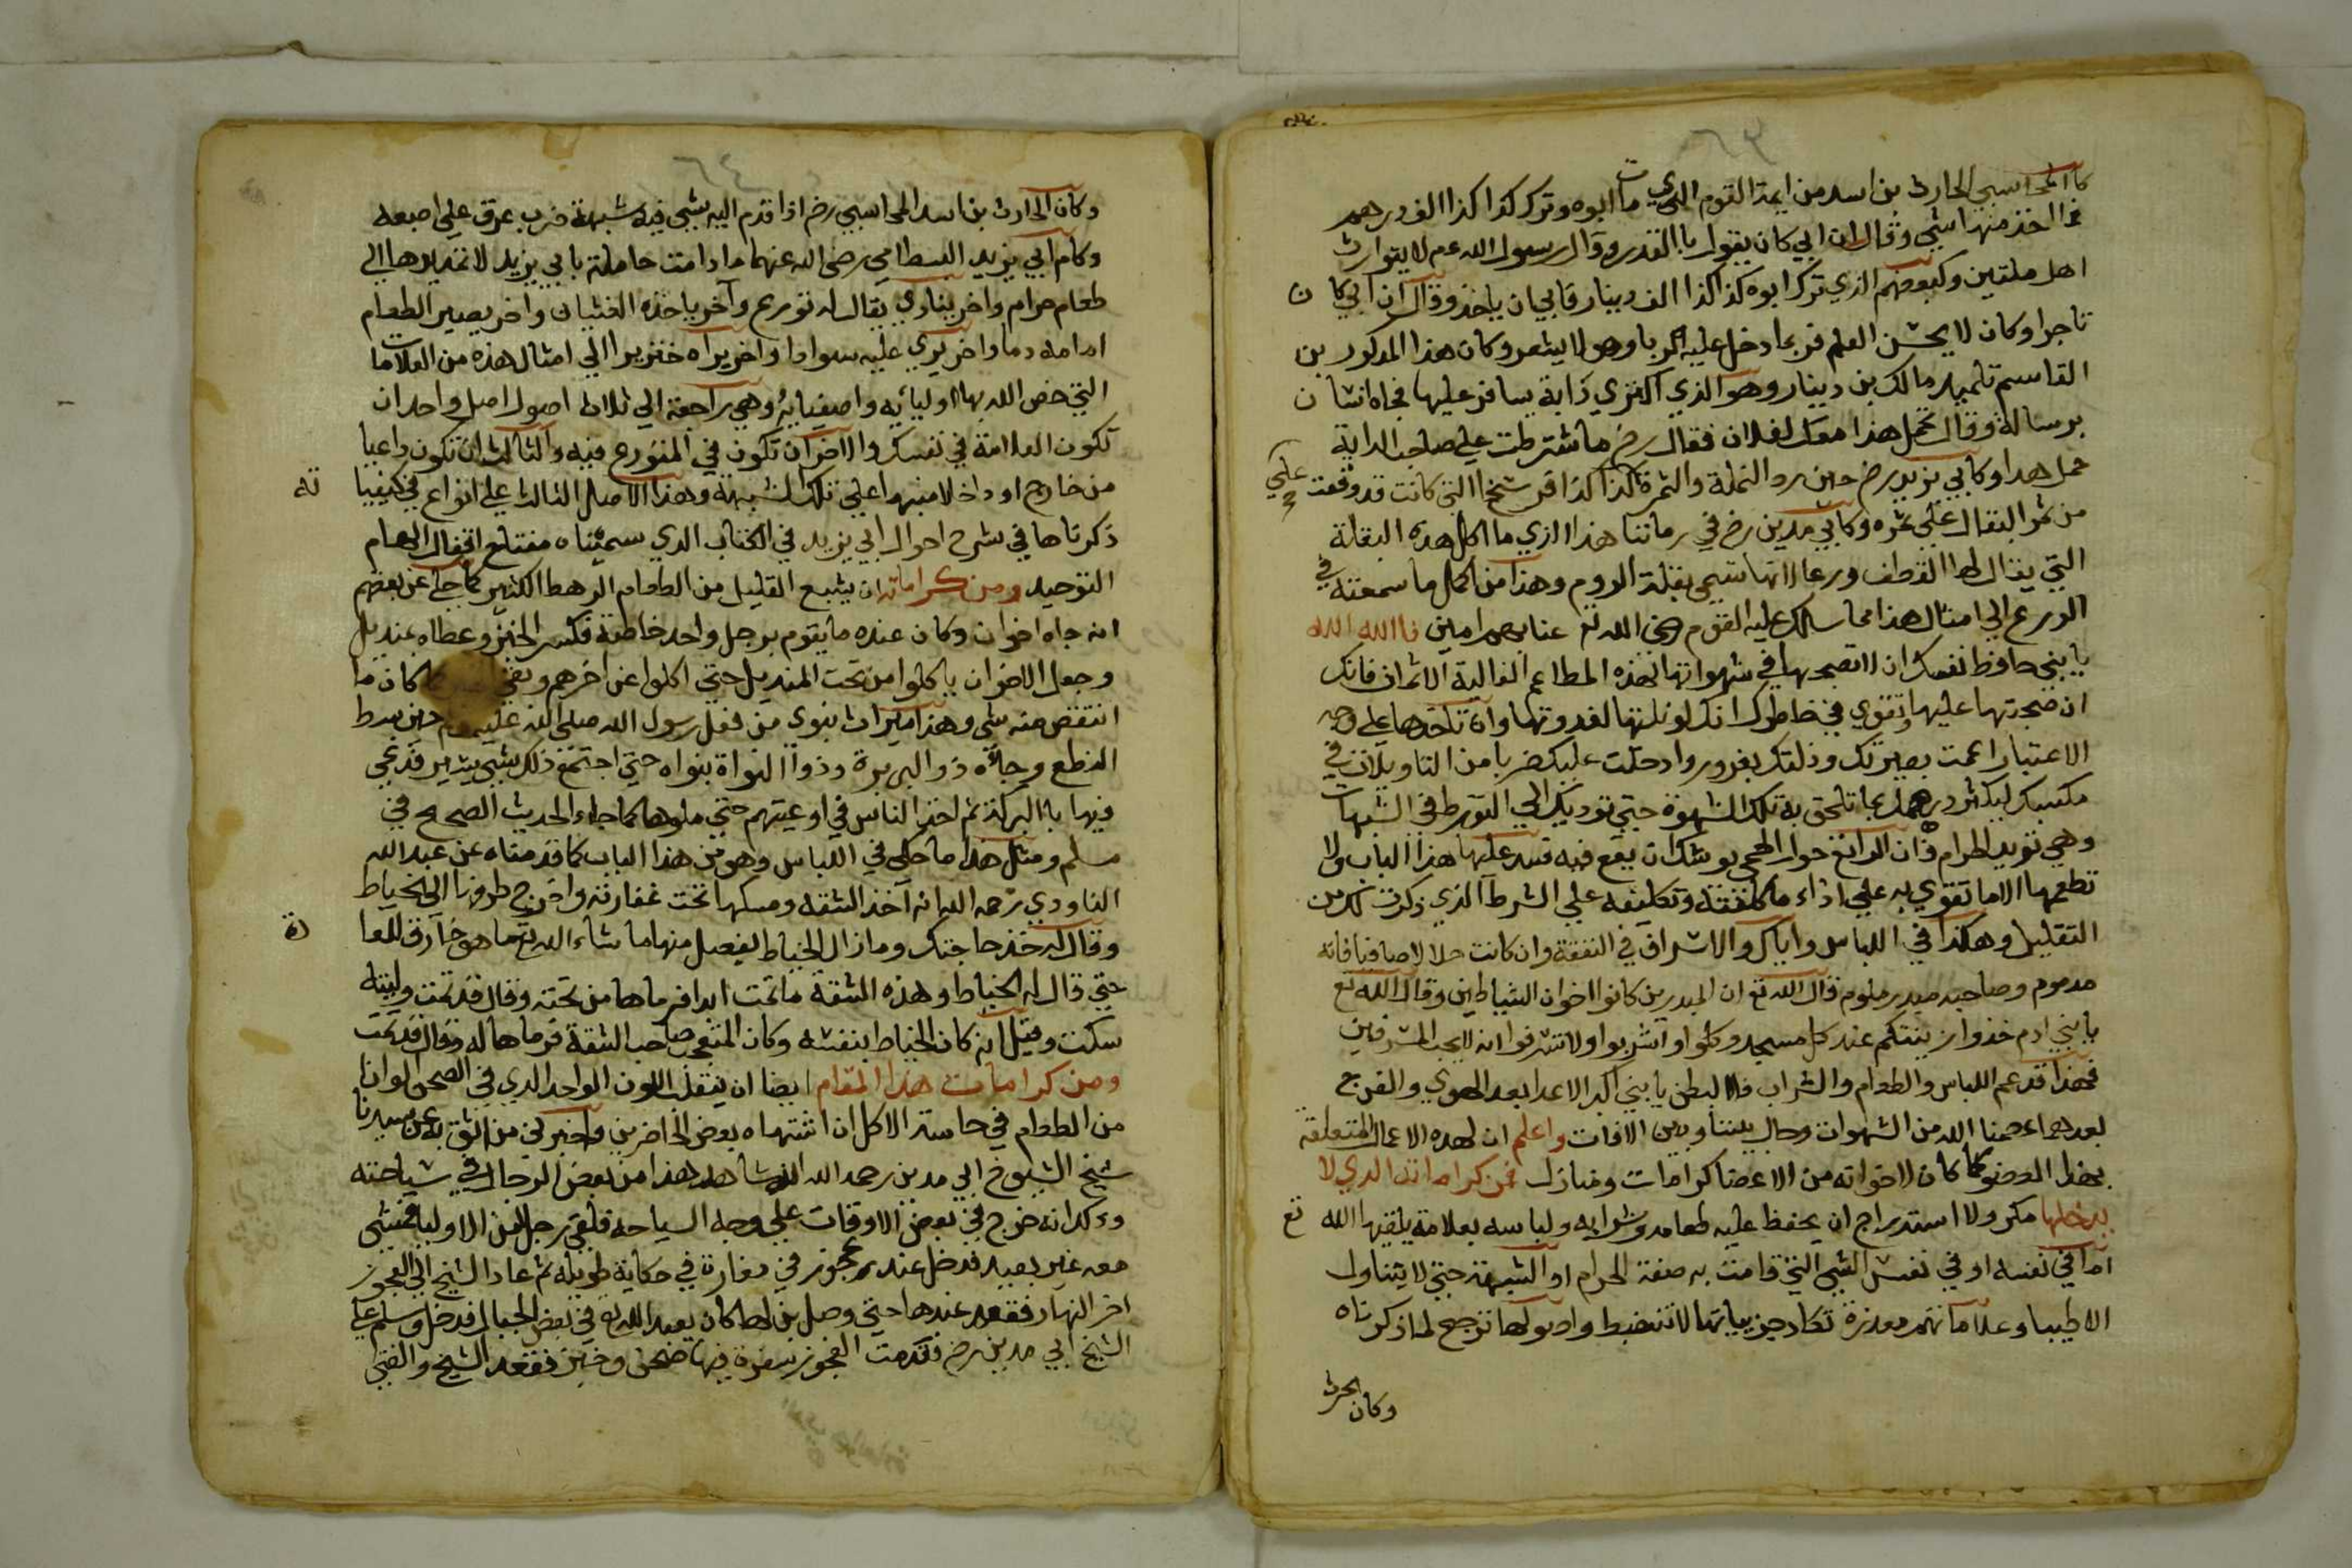 ٦٣
كالمحاسبي الحارث بن اسد من ايمة القوم الذي مات ابوه وترك كذا كذا الف درهم
فما اخذ منها شي وقال ان ابي كان يقول بالقدر وقال رسول الله عم لا يتوارث
اهل ملتين وكبعضهم الذي ترك ابوه كذا كذا الف دينار فابي ان ياخذ وقال ان ابي كان
تاجرا وكان لا يحسن العلم فربما دخل عليه الربا وهو لا يشعر وكان هذا المذكور بن
القاسم تلميذ مالك بن دينار وهو الذي اكتري دابة يسافر عليها فجاه انسان
برسالة وقال تحمل هذا معك لفلان فقال رض ما شترطت علي صاحب الدابة
حمل هذا وكابي يزيد رض حين رد النملة والتمرة كذا كذا فرسخا التي كانت قد وقعت علي
من تمر البقال علي تمره وكابي مدين رض في زماننا هذا الذي ما اكل هذه البقلة
التي يقال لها القطف ورعا لانها تسمي بقلة الروم وهذا من اكمل ما سمعته في
الورع الي امثال هذا مما سلك عليه القوم رضي الله تع عنا بهم امين فالله الله
يابني حافظ نفسك ان لا تصحبها في شهواتها لهذه المطاعم الغالية الاثمان فانك
ان صحبتها عليها وتقوي في خاطرك انك لو نلتها لغدوتها وان تاخدها علي وجه
الاعتبار اعمت بصيرتك ودلتك بغرور وادخلت عليك ضربا من التاويلات في
مكسبك ليكثر درهمك بما تلحق به تلك الشهوة حتي توديك الي التورط في الشبهات
وهي تريد الحرام فان الراتع حول الحمي يوشك ان يقع فيه فسد عليها هذا الباب ولا
تطعمها الا ما تقوي به علي اداء ما كلفته وتكليفه علي الشرط الذي ذكرت لك من
التقليل وهكذا في اللباس واياك والاسراف في النفقة وان كانت حلالا صافيا فانه
مدموم وصاحبه مبدر ملوم قال الله تع ان المبدرين كانوا اخوان الشياطين وقال الله تع
يابني ادم خذوا زينتكم عند كل مسجد وكلوا واشربوا ولا تسرفوا انه لا يحب المسرفين
فهذا قد عم اللباس والطعام والشراب فالبطن يابني اكبر الاعدا بعد الهوي والفرج
بعدهما عصمنا الله من الشهوات وحال بيننا وبين الافات واعلم ان لهذه الاعمال المتعلقة
بهذا العضو كما كان لاخواته من الاعضا كرامات ومنازل فمن كراماته الذي لا
يدخلها مكر ولا استدراج ان يحفظ عليه طعامه وشرابه ولباسه بعلامة يلقيها الله تع
اما في نفسه او في نفس الشي الذي قامت به صفة الحرام او الشبهة حتي لا يتناول
الا طيبا وعلاماتهم معزرة تكاد جزيياتها لا تنضبط واصولها ترجع لما ذكرناه
وكان الحرث
٦٤
وكان الحارث بن اسد المحاسبي رض اذا قدم اليه بشي فيه شبهة ضرب عرق علي اصبعه
وكام ابي يزيد البسطامي رضي الله عنهما ما دامت حاملة بابي يزيد لا تمتد يدها الي
طعام حرام واخر ينادي يقال له تورع وآخر ياخذه الغثيان واخر يصير الطعام
امامه دما واخر يري عليه سوادا واخر يراه خنزيرا الي امثال هذه من العلامات
التي خص الله بها اوليائه واصفيايه وهي راجعة الي ثلاث اصول اصل واحد ان
تكون العلامة في نفسك والاخر ان تكون في المتورع فيه والثالث ان تكون داعيا
من خارج او داخلا منبها علي تلك الشبهة وهذا الاصل الثالث علي انواع في كيفياته
ذكرناها في شرح احوال ابي يزيد في الكتاب الذي سميناه مفتاح اقفال الهام
التوحيد ومن كراماته ان يشبع القليل من الطعام الرهط الكثير كما حكي عن بعضهم
انه جاه اخوان وكان عنده ما يقوم برجل واحد خاصة فكسر الخبز وغطاه بمنديل
وجعل الاخوان ياكلوا من تحت المنديل حتي اكلوا عن اخرهم وبقي كما كان ما
انتقص منه شي وهذا ميراث نبوي من فعل رسول الله صلي الله عليه وسلم حين بسط
النطع وجآه ذو البر ببرة وذو النواة بنواه حتي اجتمع ذلك شي يسير فدعي
فيها بالبركة ثم اخذ الناس في اوعيتهم حتي ملوها كما جاء الحديث الصحيح في
مسلم ومثل هذا ما حكي في اللباس وهو من هذا الباب كما قدمناه عن عبد الله
التاودي رحمه الله انه اخذ الشقه ومسكها تحت غفارته واخرج طرفها الي الخياط
وقال له خذ حاجتك وما زال الخياط يفصل منها ما شاء الله تع مما هو خارق للعادة
حتي قال له الخياط وهذه الشقة ما تمت ابدا فرماها من تحته وقال قد تمت وليته
سكت وقيل انه كان الخياط بنفسه وكان المتعجب صاحب الشقة فرماها له وقال قد تمت
ومن كرامات هذا المقام ايضا ان ينقلب اللون الواحد الذي في الصحن الوانا
من الطعام في حاسة الاكل ان اشتهاه بعض الحاضرين واخبرني من اثق به عن سيدنا
شيخ الشيوخ ابي مدين رحمه الله انه شاهد هذا من بعض الرجال في سياحته
وذكر انه خرج في بعض الاوقات علي وجه السياحه فلقي رجل من الاوليا فمشي
معه غير بعيد فدخل عند عجوز في مغارة في حكاية طويله ثم عاد الشيخ الي العجوز
اخر النهار فقعد عندها حتي وصل بن لها كان يعبد الله تع في بعض الجبال فدخل وسلم علي
الشيخ ابي مدين رض فقدمت العجوز سفرة فيها صحن وخبز فقعد الشيخ والفتي